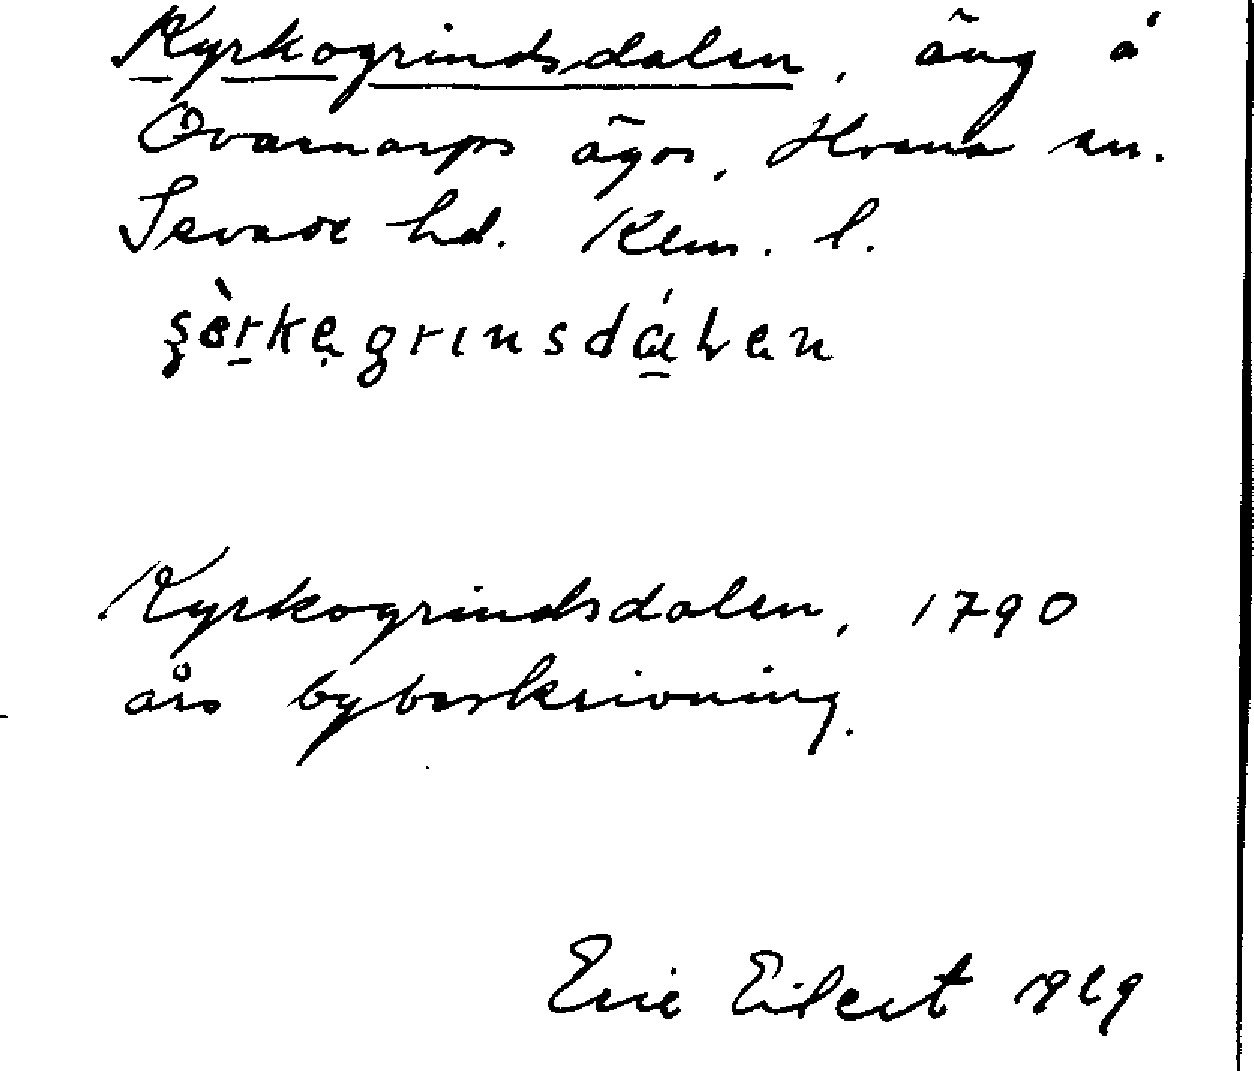 Kyrkogrindsdalen, äng å
Qvarnarps ägor, Hvena sn.
Sevede hd. Klm. l.
Kyrkogrindsdalen, 1790
års bybeskrivning.
Eric Eilert 1929